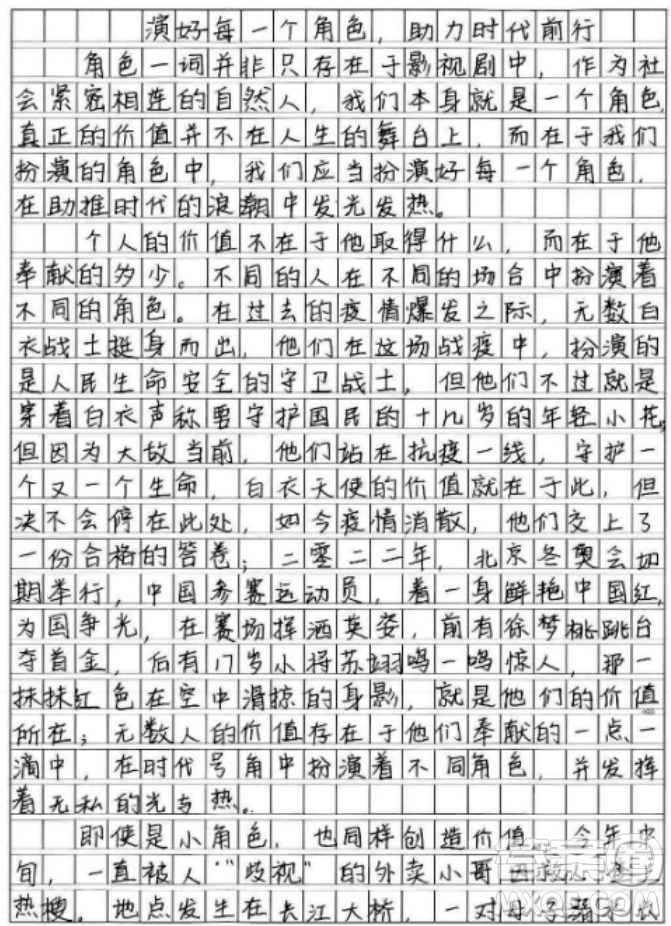 演好每一个角色，助力时代前行
角色一词并非只存在于影视剧中，作为社
会紧密相连的自然人，我们本身就是一个角色，
真正的价值并不在人生的舞台上，而在于我们
扮演的角色中，我们应当扮演好每一个角色，
在助推时代的浪潮中发光发热。
个人的价值不在于他取得什么，而在于他
奉献的多少。不同的人在不同的场合中扮演着
不同的角色。在过去的疫情爆发之际，无数白
衣战士挺身而出，他们在这场战疫中，扮演的
是人民生命安全的守卫战士，但他们不过就是
穿着白衣声称要守护国民的十几岁的年轻小花，
但因为大敌当前，他们站在抗疫一线，守护一
个又一个生命，白衣天使的价值就在于此，但
决不会停在此处，如今疫情消散，他们交上了
一份合格的答卷；二零二二年，北京冬奥会如
期举行，中国参赛运动员，着一身鲜艳中国红，
为国争光，在赛场挥洒英姿，前有徐梦桃跳台
夺首金，后有17岁小将苏翊鸣一鸣惊人，那一
抹抹红色在空中滑掠的身影，就是他们的价值
所在；无数人的价值存在于他们奉献的一点一
滴中，在时代号角中扮演着不同角色，并发挥
着无私的光与热。
即使是小角色，也同样创造价值。今年中
旬，一直被人“歧视”的外卖小哥因救人登
热搜。地点发生在长江大桥，一对母子